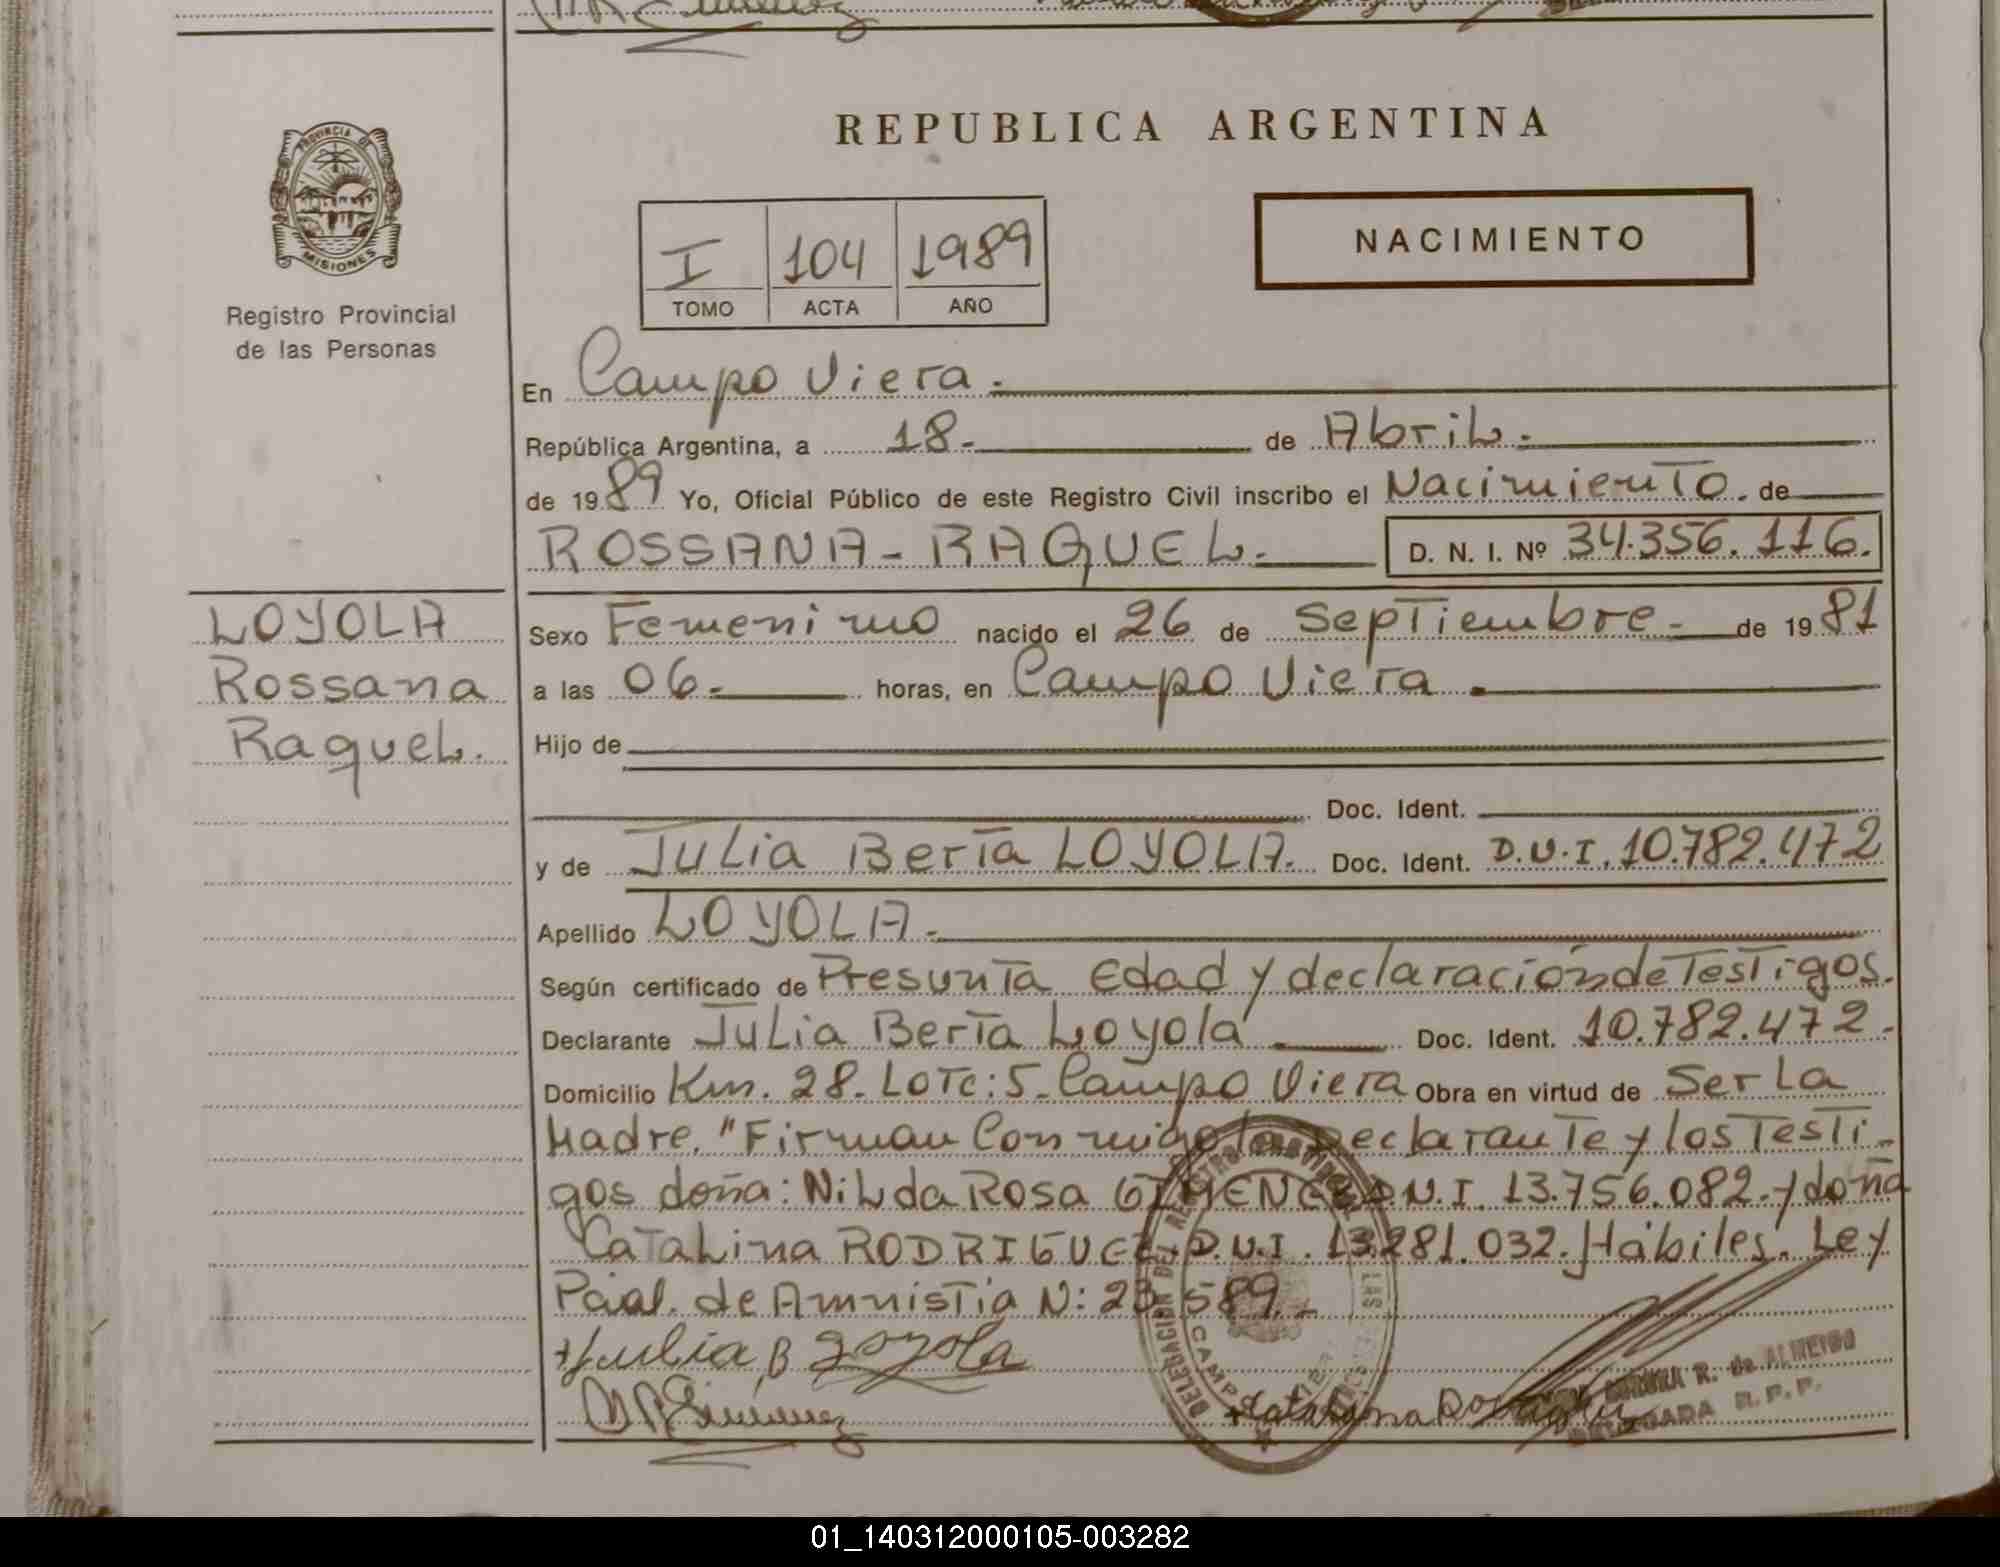 PROVINCIA DE
MISIONES
Registro Provincial
de las Personas
LOYOLA
Rossana
Raquel.
REPUBLICA ARGENTINA
I 104 1989
TOMO ACTA AÑO
NACIMIENTO
En Campo Viera.
República Argentina, a 18- de Abril.
de 1989 Yo, Oficial Público de este Registro Civil inscribo el Nacimiento. de
ROSSANA-RAQUEL. D. N. I. Nº 34.356.116.
Sexo Femenino nacido el 26 de Septiembre- de 1981
a las 06- horas, en Campo Viera.
Hijo de
Doc. Ident.
y de Julia Berta LOYOLA. Doc. Ident. D.N.I. 10.782.472
Apellido LOYOLA.
Según certificado de Presunta Edad y declaración de Testigos.
Declarante Julia Berta Loyola Doc. Ident. 10.782.472.
Domicilio Km. 28. Lote: 5. Campo Viera Obra en virtud de Ser La
Madre. "Firman Conmigo la Declarante y los Testi-
gos doña: Nilda Rosa GIMENEZ D.N.I. 13.756.082. y doña
Catalina RODRIGUEZ. D.N.I. 13.281.032. Hábiles. Ley
Pcial. de Amnistia N: 23.589.-
Julia B Loyola
Gimenez
Catalina
R. de ALMEIDA
DELEGADA R.P.P.
DELEGACION DEL REGISTRO PROVINCIAL
LAS
CAMPO
01_140312000105-003282